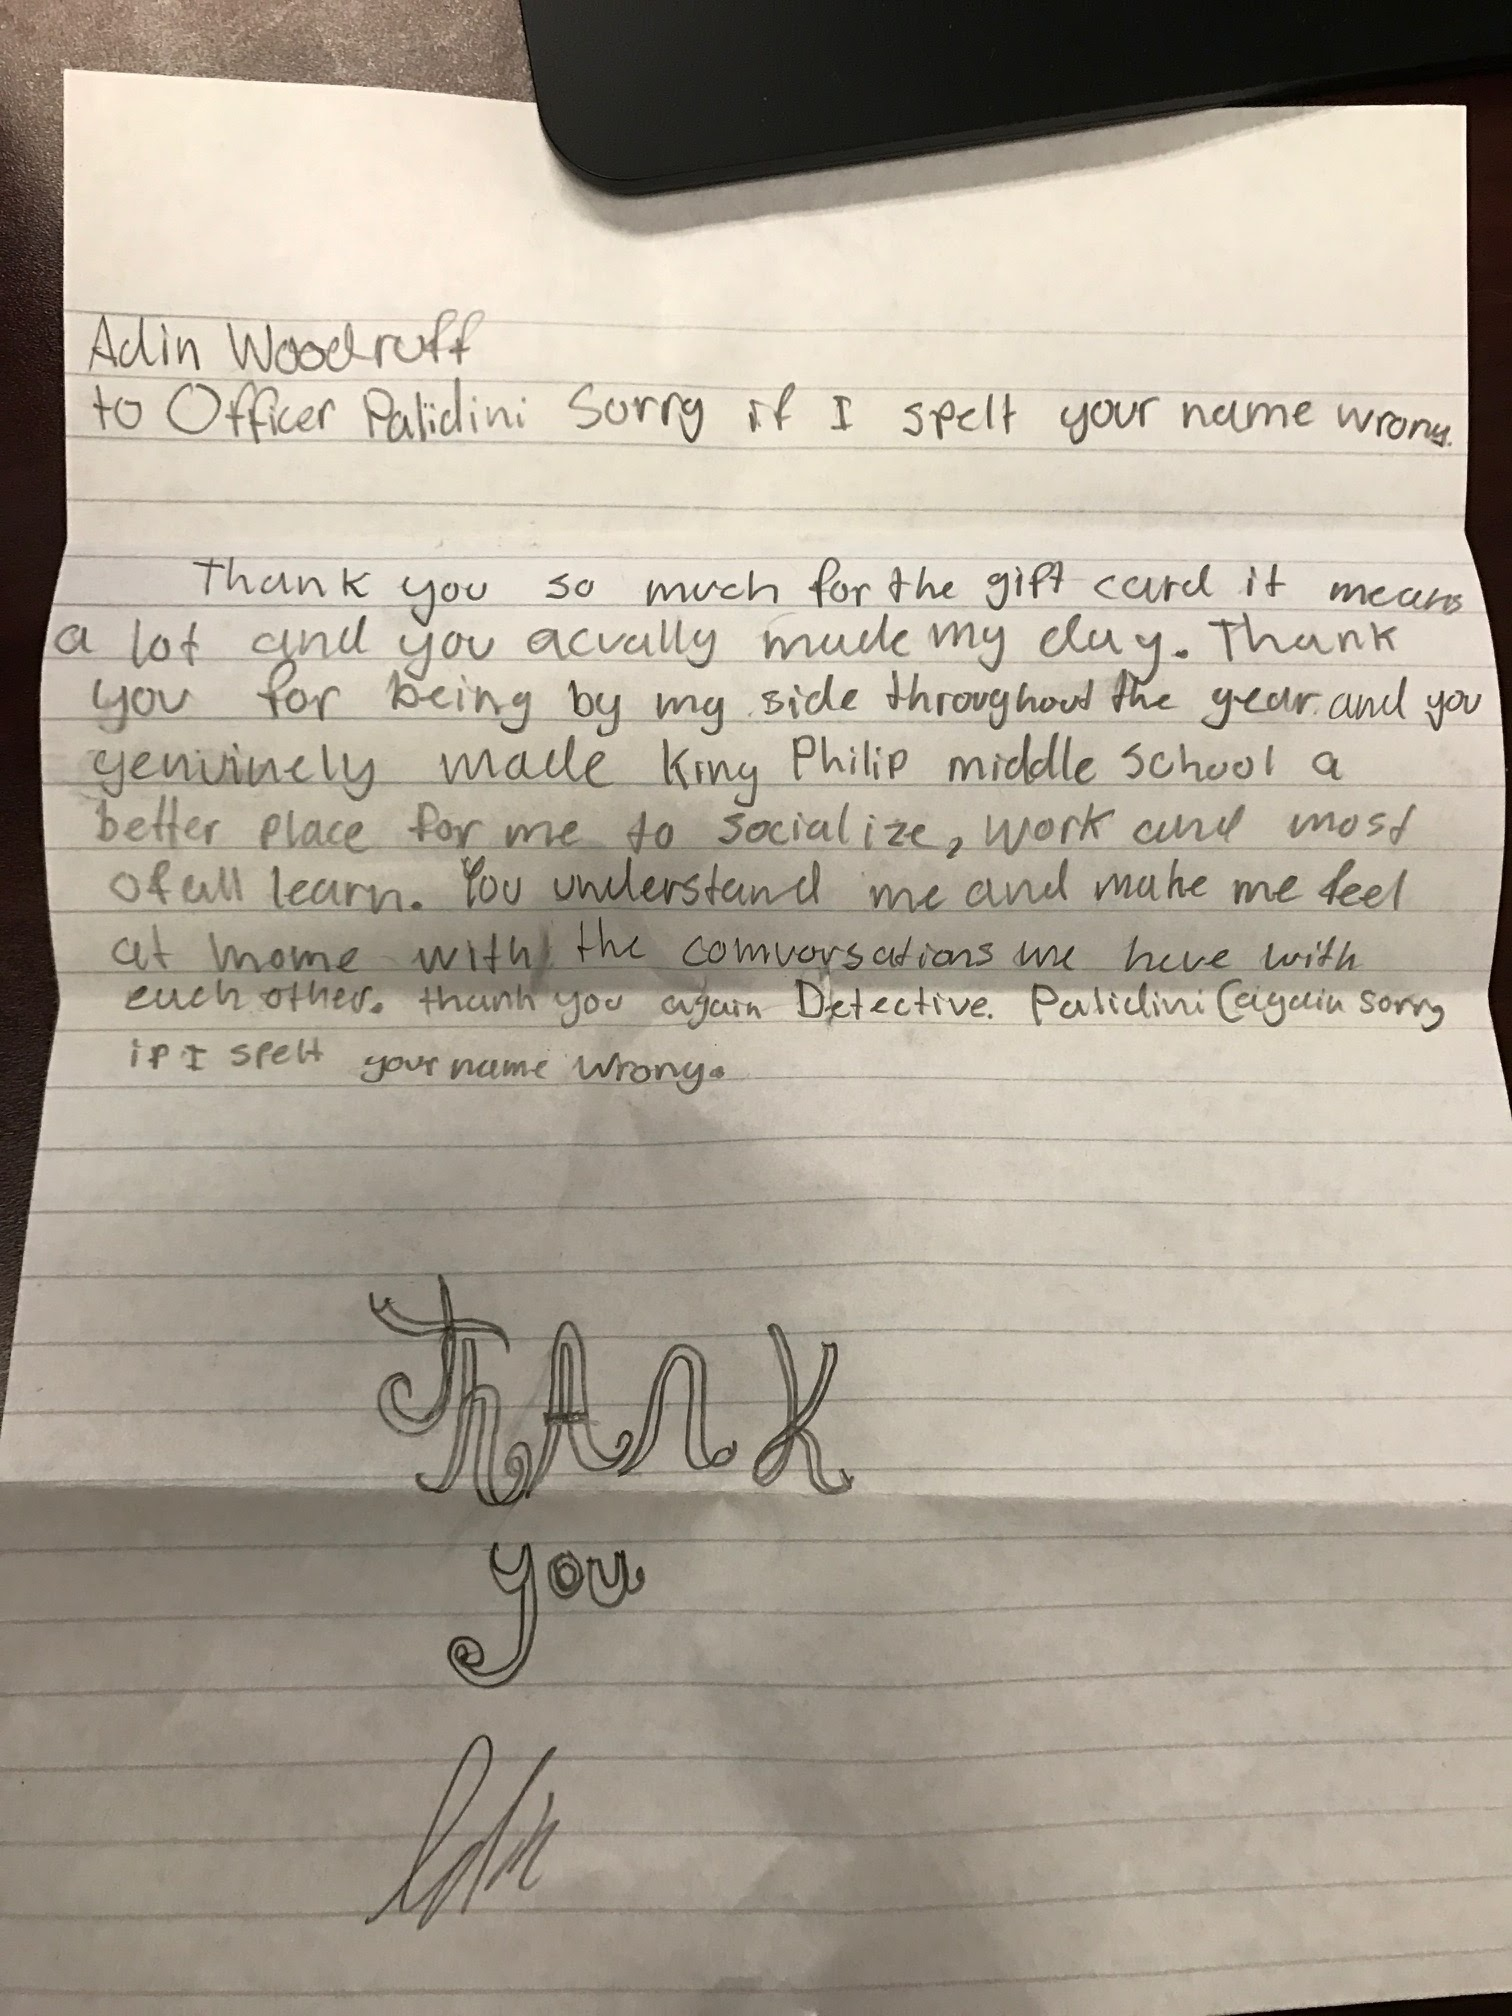 Adin Woodruff
to Officer Palidini Sorry if I spelt your name wrong.
Thank you so much for the gift card it means
a lot and you acvally made my day. Thank
you for being by my side throughout the year. and you
genuinely made King Philip middle school a
better place for me to socialize, work and most
of all learn. You understand me and make me feel
at home with the comversations we have with
each other. thank you again Detective. Palidini (again sorry
if I spelt your name wrong.
Thank
you
Adin